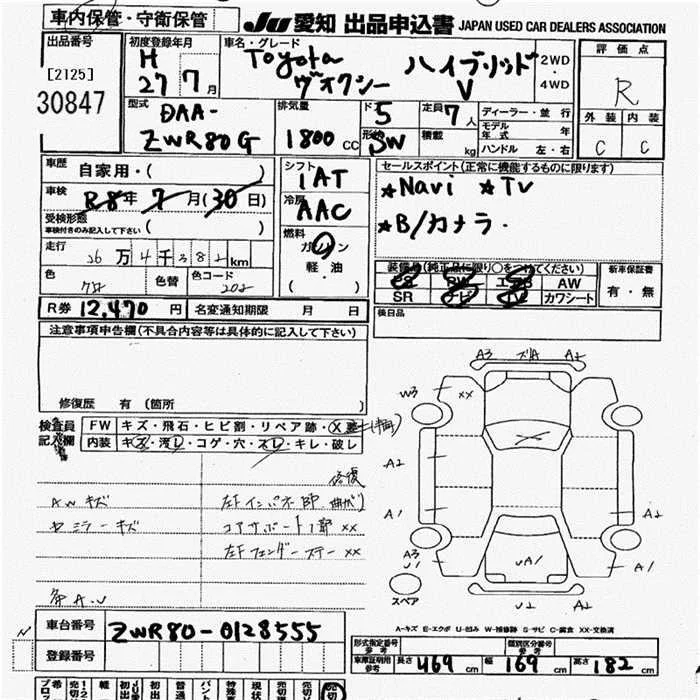 車内保管・守衛保管
JU 愛知 出品申込書 JAPAN USED CAR DEALERS ASSOCIATION
出品番号
[2125]
30847
初度登録年月
H
27年7月
車名・グレード
Toyota ハイブリッド
ヴォクシー V
2WD
・
4WD
評価点
R
外装 内装
C C
型式
DAA-
ZWR80G
排気量
1800 CC
ド 5
形状 SW
定員 7人
積載 kg
ディーラー・並行
モデル年式 年
ハンドル 左・右
車歴
自家用・( )
車検
R8年7月(30日)
受検形態
車検付きのみ記入して下さい ( )
走行
26万4千382km
色
色替
色コード
202
シフト
IAT
冷房
AAC
燃料
ガソリン
軽油
( )
セールスポイント(正常に機能するものに限ります)
★Navi ★TV
★B/カメラ.
装備品(純正品に限り○をつけてください)
PS PW エアB AW
SR ナビ TV カワシート
新車保証書
有・無
R券 12,470円
名変通知期限 月 日
検日品
注意事項申告欄(不具合内容等は具体的に記入して下さい)
修復歴 有(箇所 )
検査員記入欄
FW キズ・飛石・ヒビ割・リペア跡・X要
内装 キズ・汚レ・コゲ・穴・スレ・キレ・破レ
修復
AWキズ
左Fインパネ部 曲り
ミラーキズ
コアサポート1部 XX
左Fフェンダーステー XX
各A.U
A3 ズA A2
W3 XX
A2
A1
A3
U1
UA1
A2
A1
U2 A2
スペア
A-キズ E-エクボ U-凹み W-補修跡 S-サビ C-腐食 XX-交換済
車台番号 ZWR80-0128555
登録番号
形式指定番号 参考
類別区分番号 参考
車庫証明用参考 長さ 469 cm 幅 169 cm 高さ 182 cm